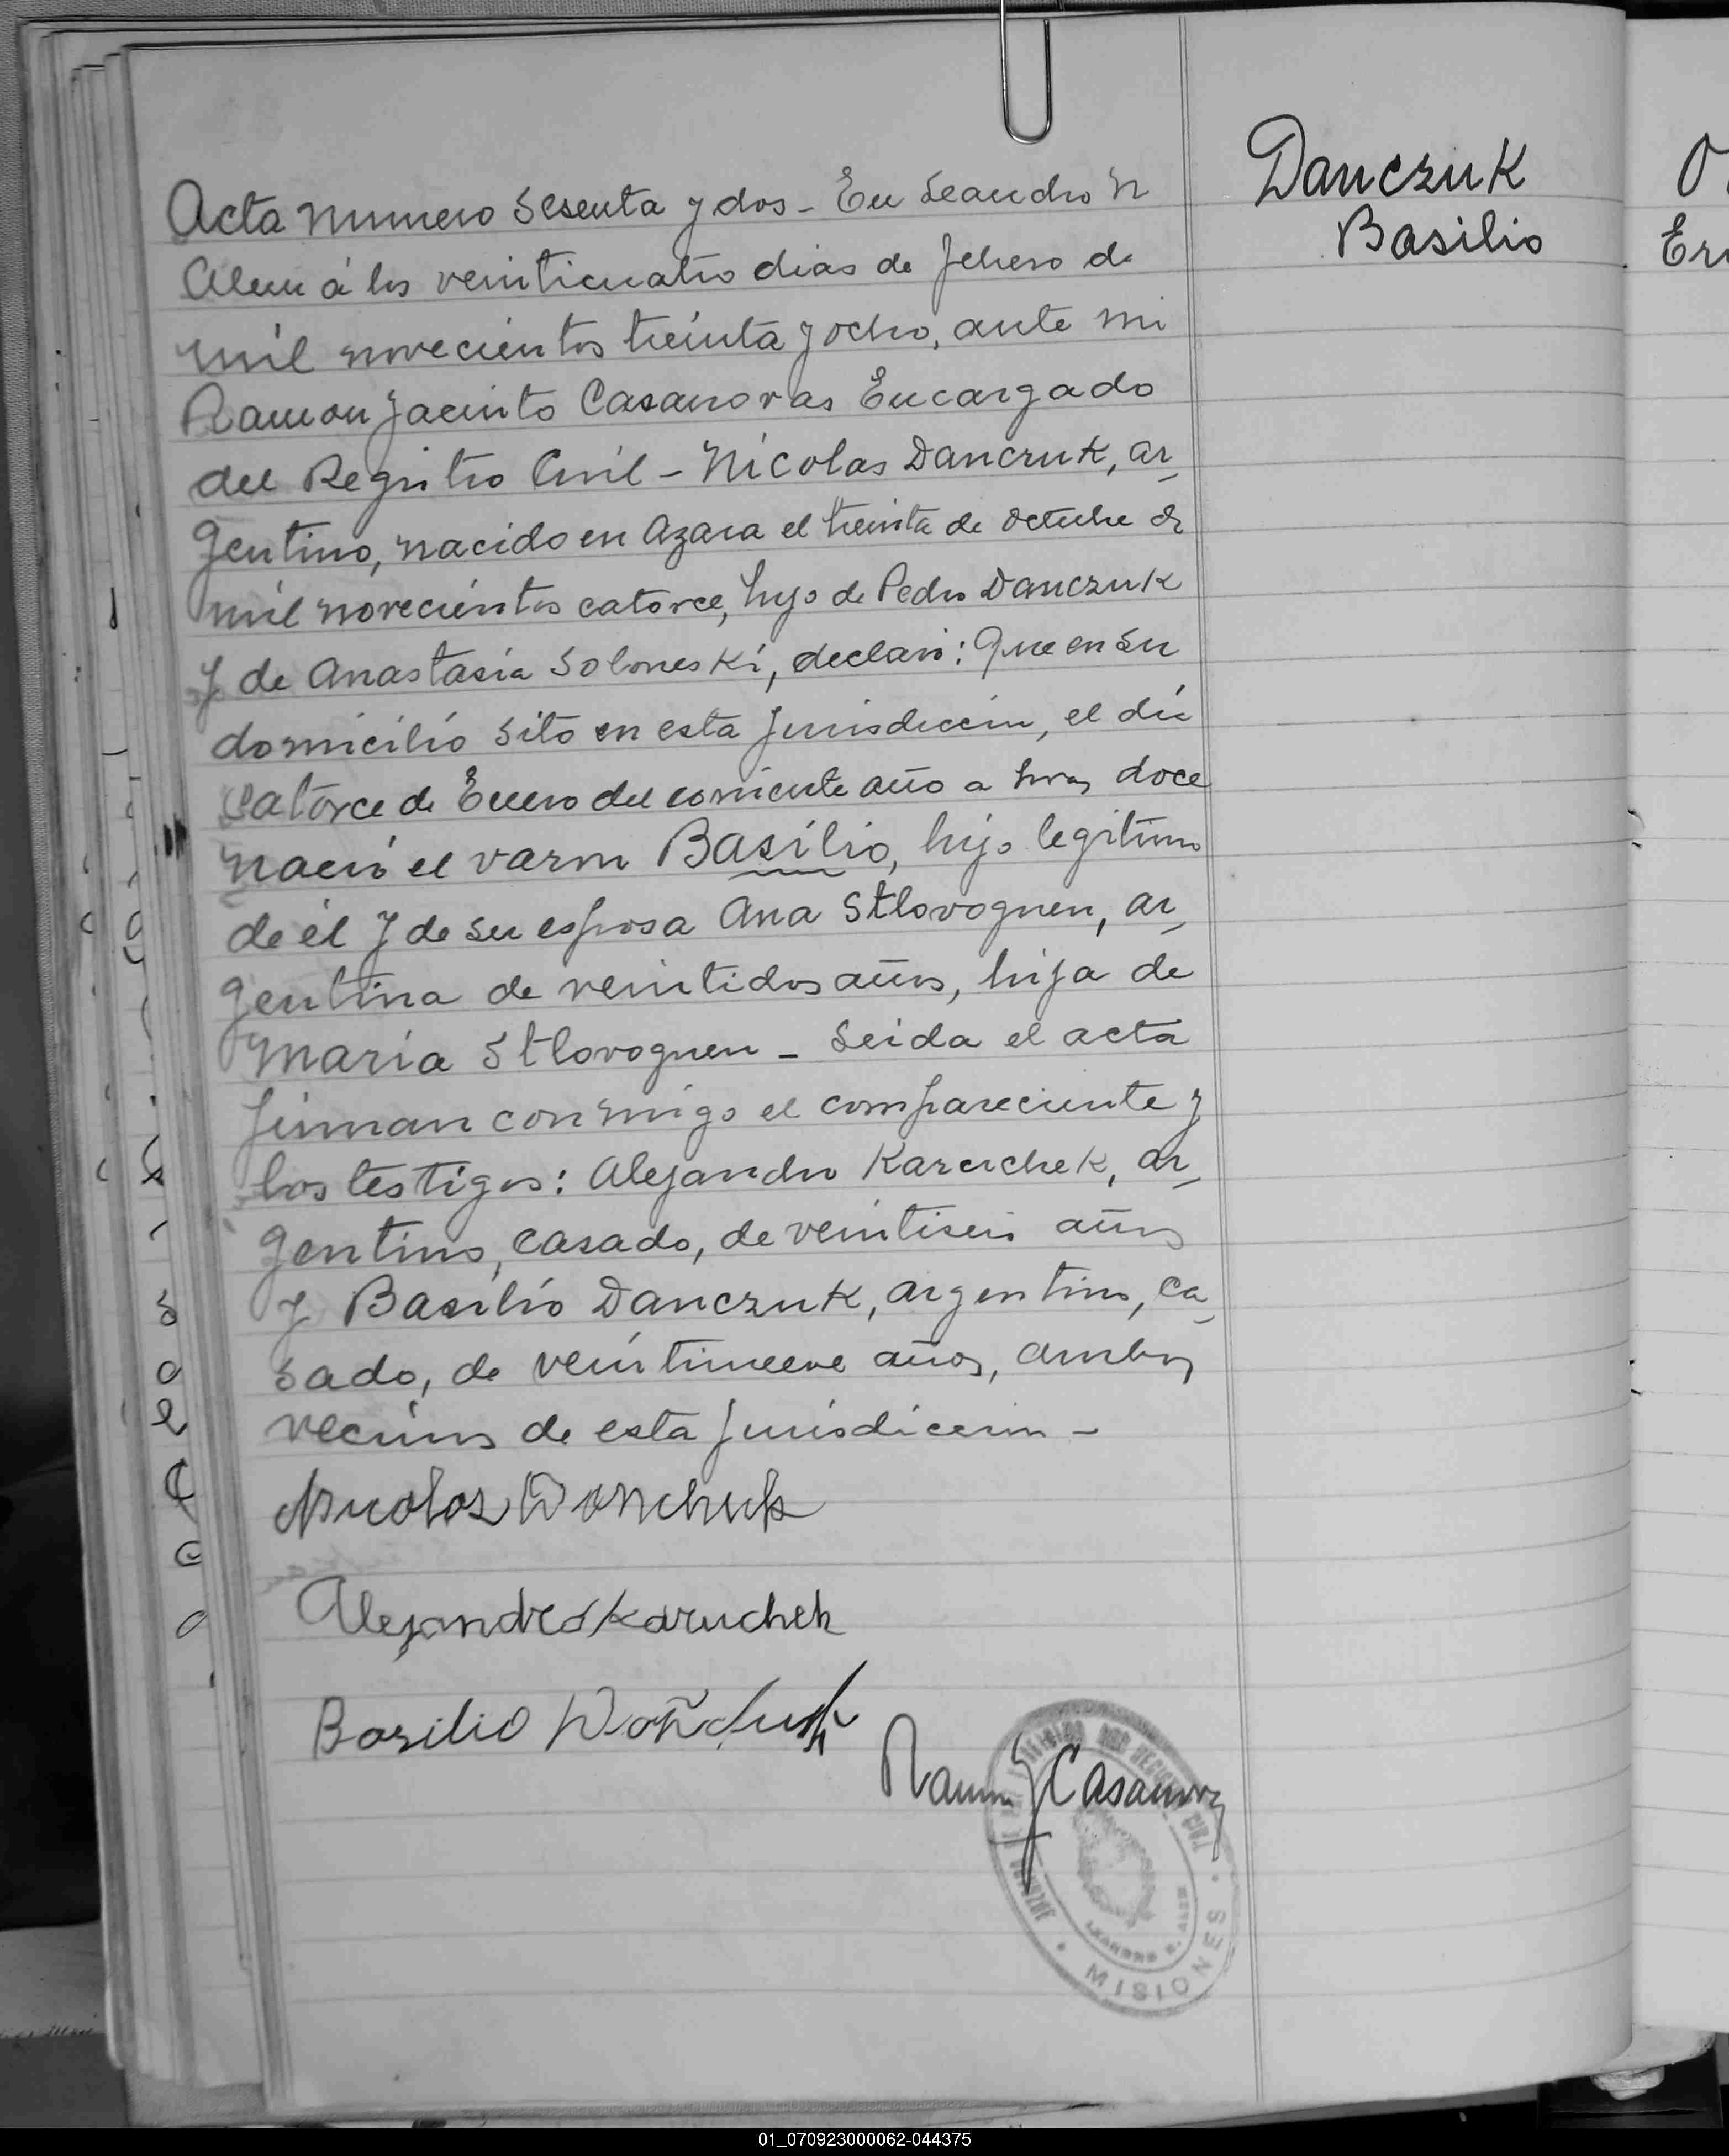 Danczuk
Basilio
Acta numero sesenta y dos - En Leandro N
Alem á los veinticuatro dias de febrero de
mil novecientos treinta y ocho, ante mi
Ramon Jacinto Casanovas Encargado
del Registro Civil - Nicolas Danczuk, ar
gentino, nacido en Azara el treinta de octubre de
mil novecientos catorce, hijo de Pedro Danczuk
y de Anastasia Soloneski, declaró: Que en su
domicilio sito en esta jurisdiccion, el dia
catorce de Enero del corriente año a horas doce
nació el varon Basilio, hijo legitimo
de él y de su esposa Ana Stlovoguen, ar
gentina de veintidos años, hija de
Maria Stlovoguen - Leida el acta
firman conmigo el compareciente y
los testigos: Alejandro Karuchek, ar
gentino, casado, de veintiseis años
y Basilio Danczuk, argentino, ca
sado, de veintinueve años, ambos
vecinos de esta jurisdiccion -
Nicolas Donchuk
Alejandro Karuchek
Basilio
Ramon J Casanovas
LEANDRO N. ALEM
MISIONES
01_070923000062-044375